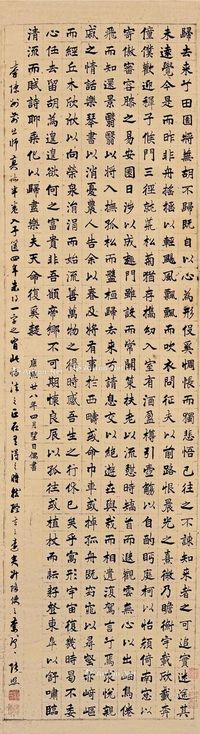 歸去來兮田園將蕪胡不歸既自以心為形役奚惆悵而獨悲悟已往之不諫知來者之可追實迷途其
未遠覺今是而昨非舟搖搖以輕颺風飄飄而吹衣問征夫以前路恨晨光之熹微乃瞻衡宇載欣載奔
僮僕歡迎稚子候門三徑就荒松菊猶存攜幼入室有酒盈樽引壺觴以自酌眄庭柯以怡顏倚南窗以
寄傲審容膝之易安園日涉以成趣門雖設而常關策扶老以流憩時矯首而遐觀雲無心以出岫鳥倦
飛而知還景翳翳以將入撫孤松而盤桓歸去來兮請息交以絕遊世與我而相遺復駕言兮焉求悅親
戚之情話樂琴書以消憂農人告余以春及將有事於西疇或命巾車或棹孤舟既窈窕以尋壑亦崎嶇
而經丘木欣欣以向榮泉涓涓而始流善萬物之得時感吾生之行休已矣乎寓形宇內復幾時曷不委
心任去留胡為遑遑欲何之富貴非吾願帝鄉不可期懷良辰以孤往或植杖而耘耔登東皋以舒嘯臨
清流而賦詩聊乘化以歸盡樂夫天命復奚疑
康熙廿八年四月望日偶書